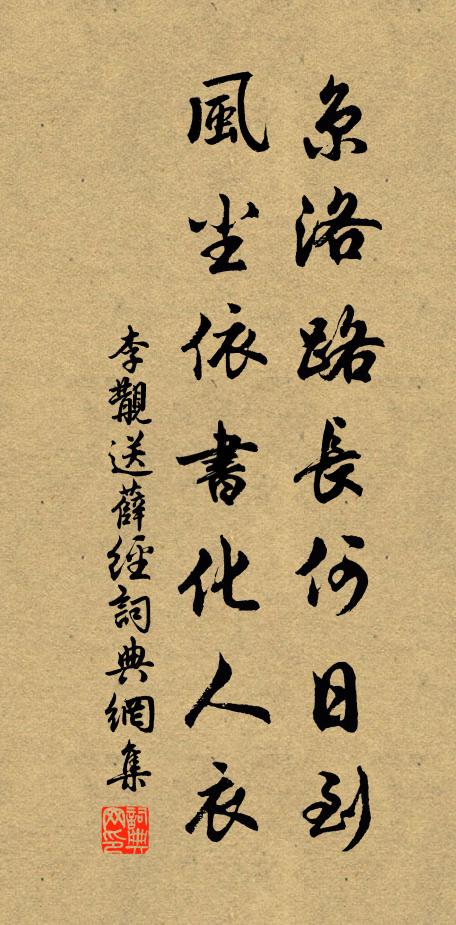 京洛路長何日到
風尘依書化人衣
李覯送薛經詞典網集
詞典網印